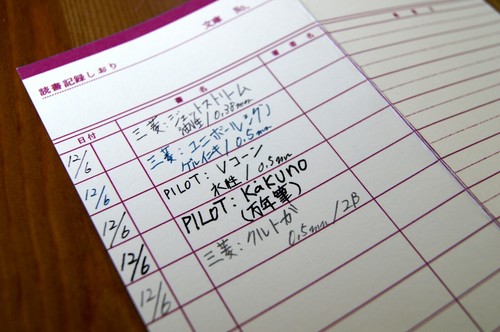 文庫 No.
読書記録しおり
日付 書名 著者名
12/6 三菱:ジェットストリーム
油性/0.38mm
12/6 三菱:ユニボールシグノ
ゲルインキ/0.5mm
12/6 PILOT:Vコーン
水性/0.5mm
12/6 PILOT:kakuno
(万年筆)
12/6 三菱:クルトガ
0.5mm/2B